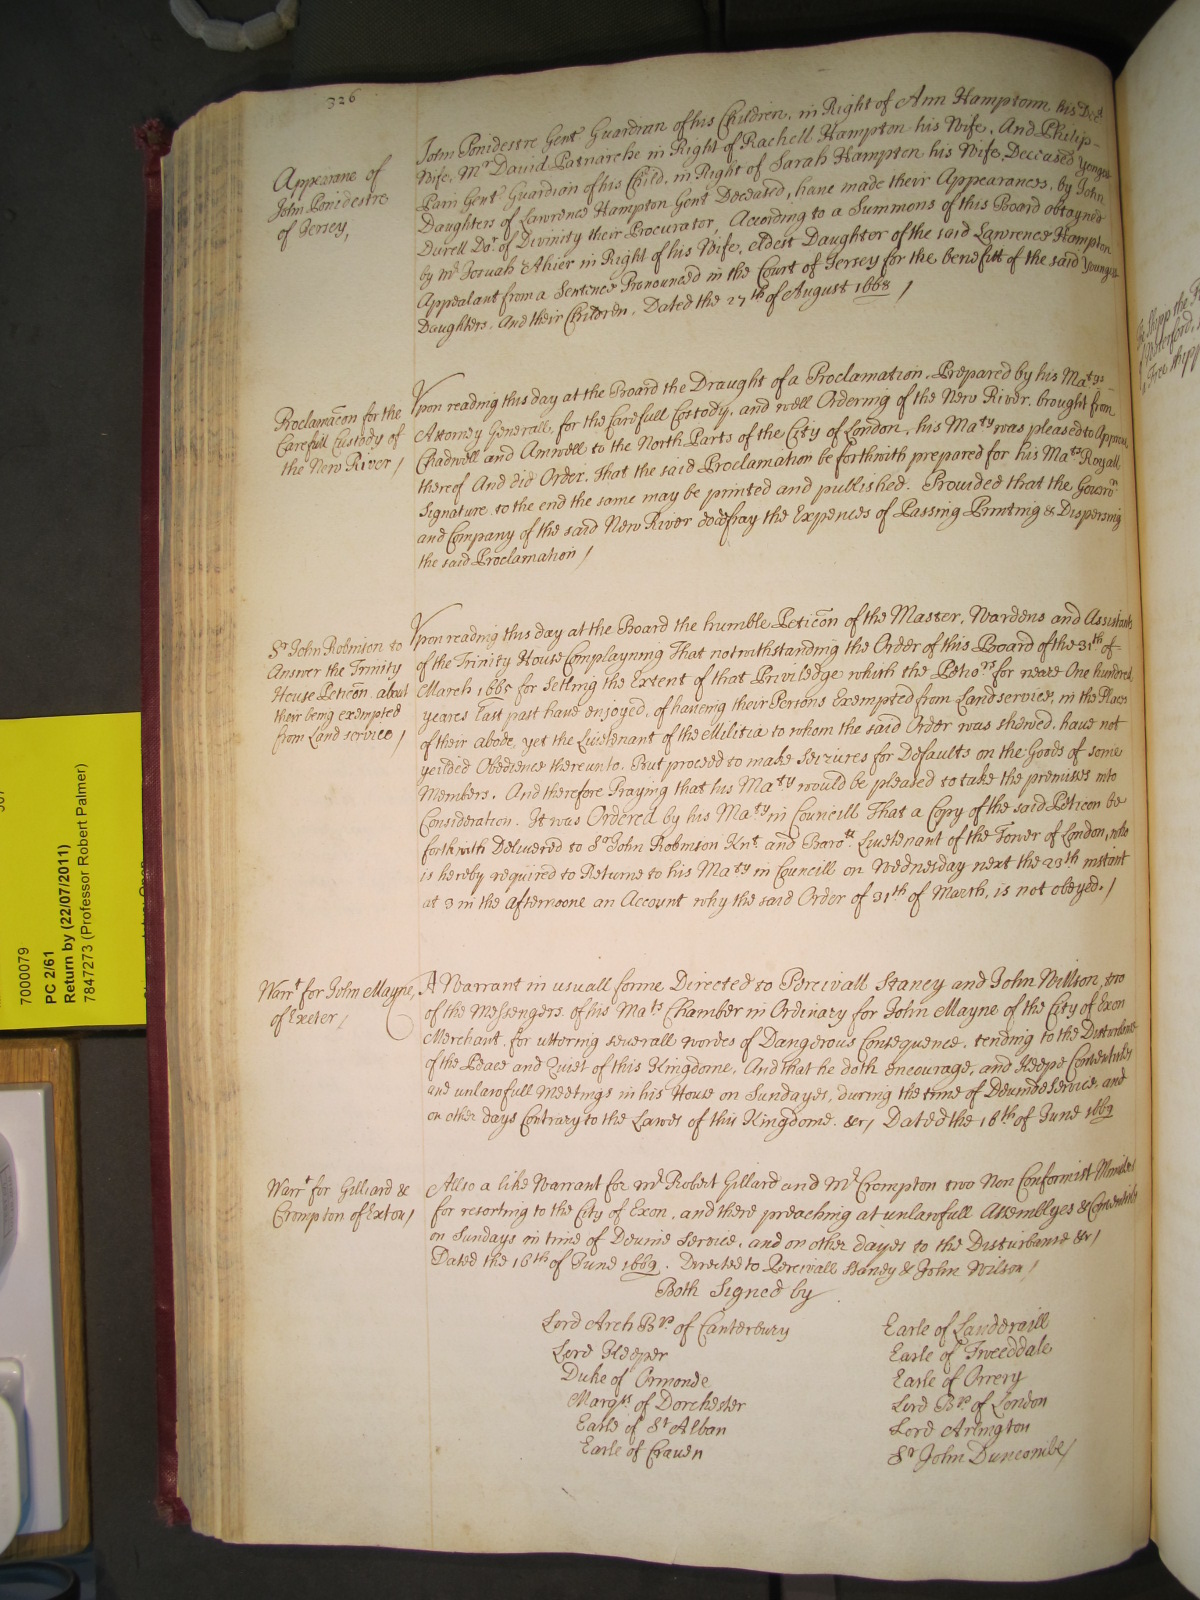 326
Appearane of
John Ponidestre
of Jersey,
John Ponidestre Gent Guardian of his Children, in Right of Ann Hamptonn his Decd
Wife, Mr David Patriarche in Right of Rachell Hampton his Wife, And Philip-
Pain Gent Guardian of his Child, in Right of Sarah Hampton his Wife, Deceased yonger
Daughters of Lawrence Hampton Gent Deceased, have made their Appearances, by John
Durell Dor. of Divinity their Procurator, According to a Summons of this Board obtayned
by Mr. Josuah Ahier in Right of his Wife, eldest Daughter of the said Lawrence Hampton
Appealant from a Sentence Pronounced in the Court of Jersey for the benefitt of the said younger
Daughters, And their Children, Dated the 27th of August 1668 /
Proclamacon for the
Carefull Custody of
the New River /
Vpon reading this day at the Board the Draught of a Proclamation, Prepared by his Matys
Attorney Generall, for the Carefull Custody, and well Ordering of the New River, brought from
Chadwell and Amwell to the North Parts of the City of London, his Maty was pleased to Approve
thereof And did Order, That the said Proclamation be forthwith prepared for his Mats Royall
Signature, to the end the same may be printed and published. Provided that the Governr
and Company of the said New River doe defray the Expences of Passing Printing & Dispersing
the said Proclamation /
Sr John Robinson to
Answer the Trinity
House Peticon about
their being exempted
from Land service /
Vpon reading this day at the Board the humble Peticon of the Master, Wardens and Assistants
of the Trinity House Complayning That notwithstanding the Order of this Board of the 31th of-
March 1665 for Setling the Extent of that Priviledge which the Petrs for neare One hundred
yeares last past have enjoyed, of haveing their Persons Exempted from Land service, in the Places
of their abode, yet the Lieutenant of the Militia to whom the said Order was shewed, have not
yeilded Obedience thereunto, But proceed to make Seizures for Defaults on the Goods of some
Members. And therefore Praying that his Maty would be pleased to take the premisses into
Consideration. It was Ordered by his Maty in Councill That a Copy of the said Peticon be
forthwith Delivered to Sr John Robinson Knt. and Barott. Liuetenant of the Tower of London, who
is hereby required to Returne to his Maty in Councill on Wednesday next the 23th instant
at 3 in the afternoone an Account why the said Order of 31th of March, is not obeyed. /
Warrt for John Mayne,
of Exeter /
A Warrant in usuall forme Directed to Percivall Staney and John Willson, two
of the Messengers of his Mats Chamber in Ordinary for John Mayne of the City of Exon
Merchant, for uttering severall words of Dangerous Consequence, tending to the Disturbance
of the Peace and Quiet of this Kingdome, And that he doth encourage, and Keepe Conventicles
and unlawfull Meetings in his House on Sundayes, during the time of Devinde Service, and
on other days Contrary to the Lawes of this Kingdome. &c / Dated the 16th of June 1669
Warrt for Gilliard &
Crompton of Exton /
Allso a like Warrant for Mr. Robert Gillard and Mr. Crompton two Non Conformist Ministers
for resorting to the City of Exon, and there preaching at unlawfull Assemblyes & Conventicles
on Sundays in time of Devine Service, and on other dayes to the Disturbance &c /
Dated the 16th of June 1669. Directed to Percivall Staney & John Wilson /
Both Signed by
Lord Arch Bp. of Canterbury
Lord Keeper
Duke of Ormonde
Marqss of Dorchester
Earle of St Alban
Earle of Craven
Earle of Landeraill
Earle of Tweeddale
Earle of Orrery
Lord Bp. of London
Lord Arlington
Sr John Duncombe /
7000079
PC 2/61
Return by (22/07/2011)
7847273 (Professor Robert Palmer)